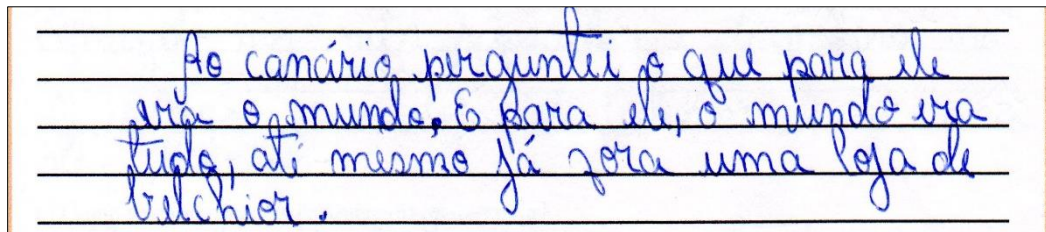 Ao canário perguntei o que para ele
era o mundo. E para ele, o mundo era
tudo, até mesmo já fora uma loja de
belchior.